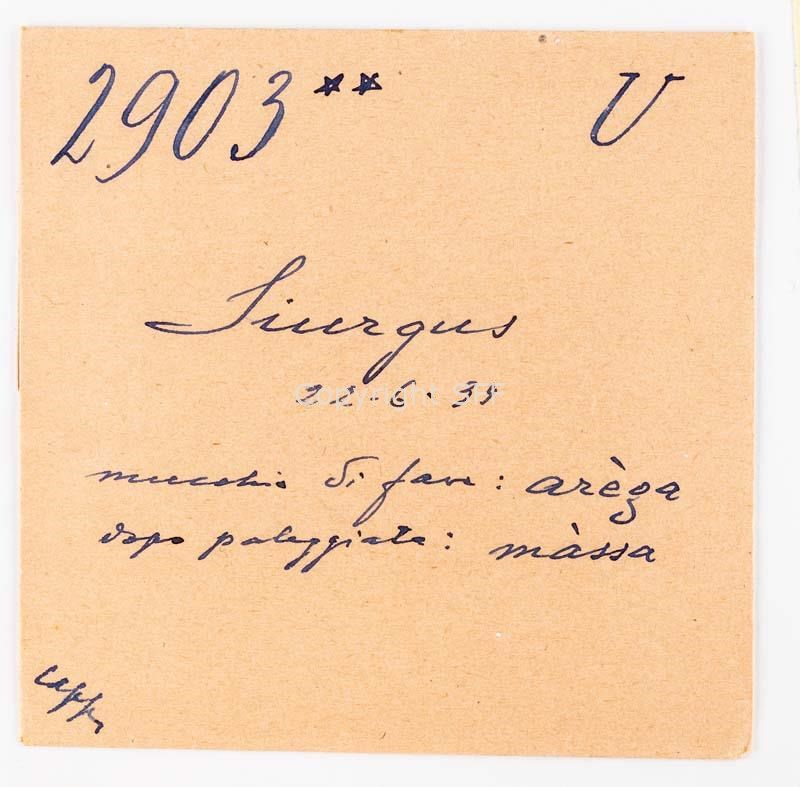 2903** V
Siurgus
22.6.35
mucchio di fave: arèga
dopo paleggiata: màssa